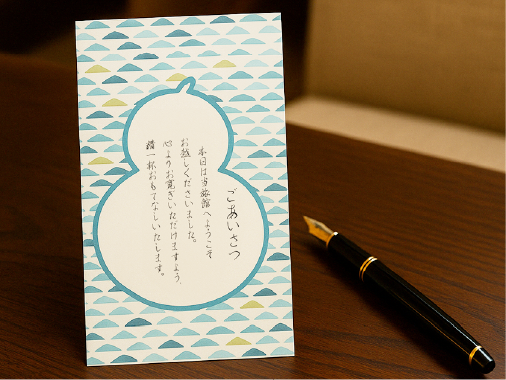 ごあいさつ
本日は当旅館へようこそ
お越しくださいました。
心よりお寛ぎいただけますよう、
精一杯おもてなしいたします。